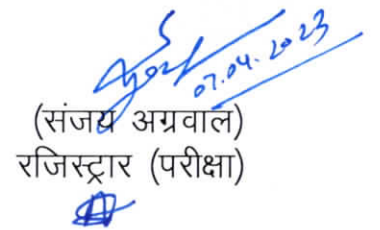 07.04.2023
(संजय अग्रवाल)
रजिस्ट्रार (परीक्षा)